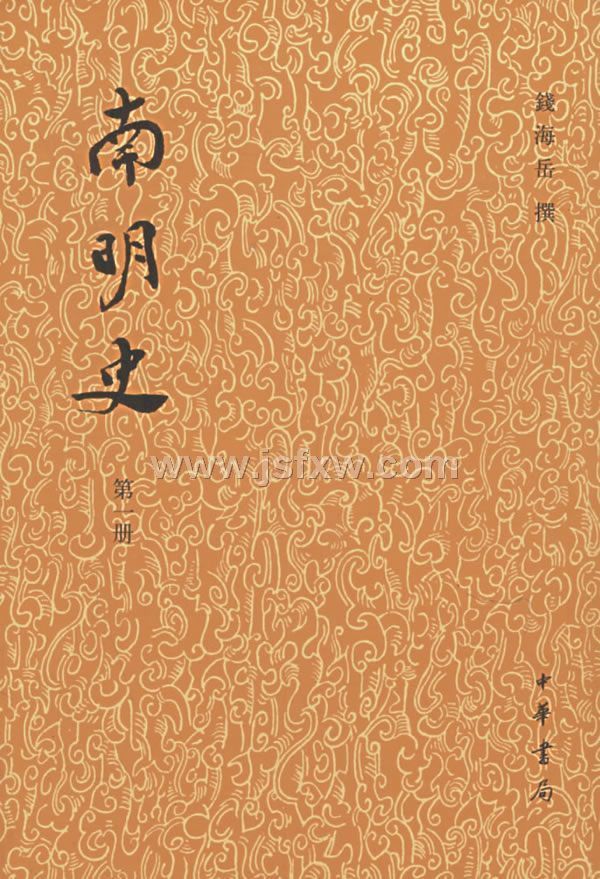 錢海岳 撰
南明史
第一册
www.jsfxw.com
中華書局